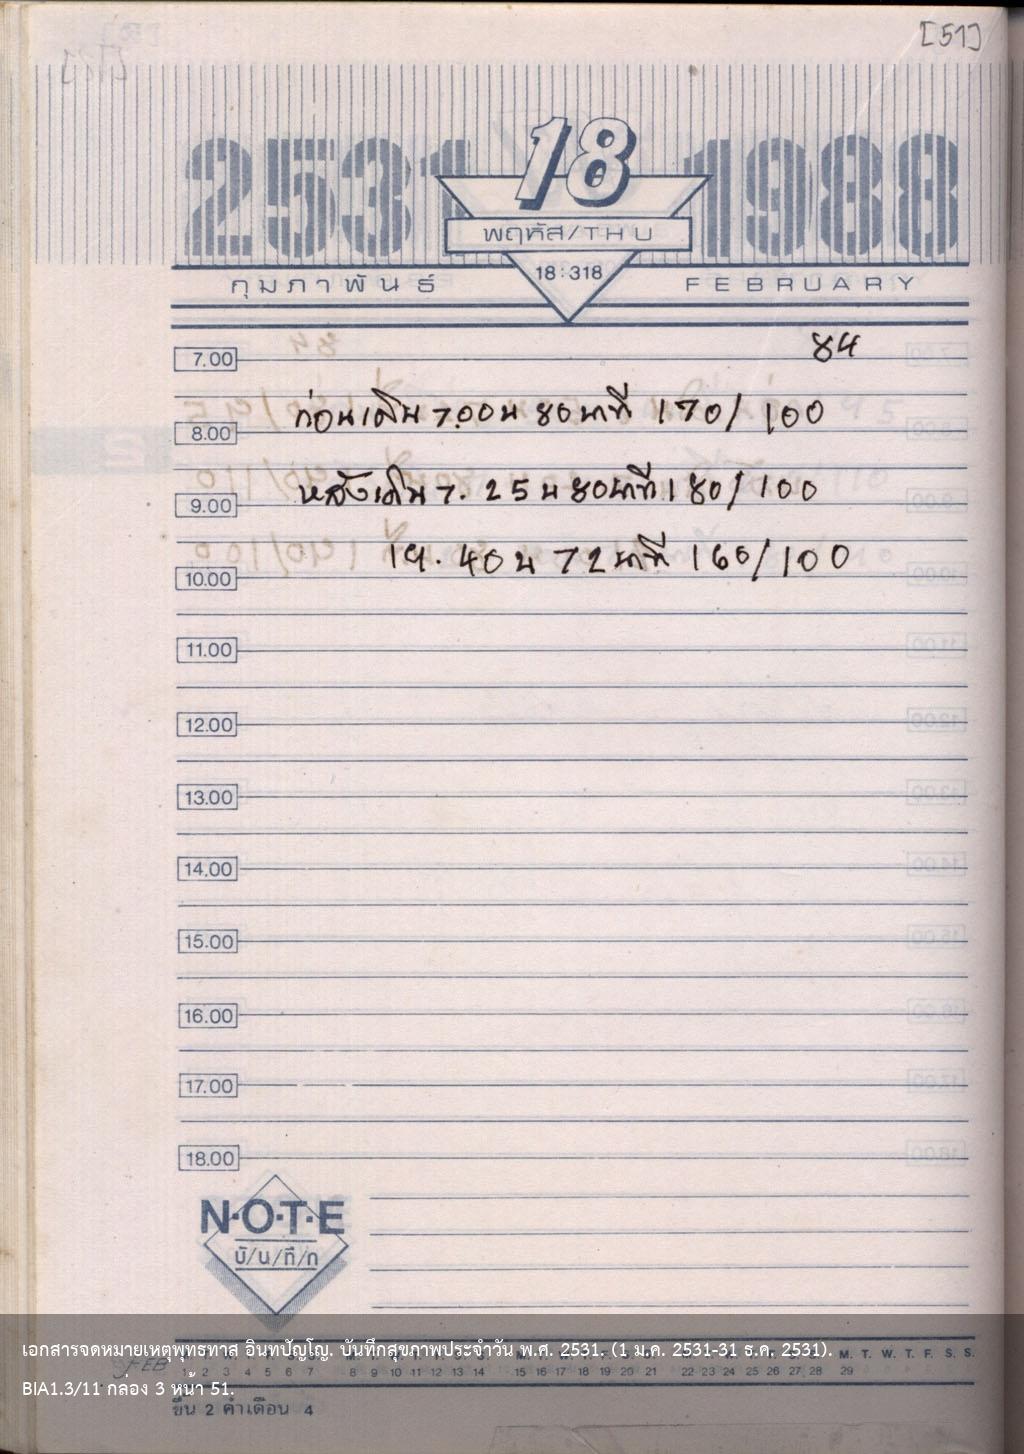 [51]
2531 18 1988
พฤหัส/THU
18:318
กุมภาพันธ์ FEBRUARY
7.00 84
ก่อนเดิน 7.00 น 80 นาที 170/100
8.00
หลังเดิน 7.25 น 80 นาที 180/100
9.00
19.40 น 72 นาที 160/100
10.00
11.00
12.00
13.00
14.00
15.00
16.00
17.00
18.00
N·O·T·E
บั/น/ทึ/ก
เอกสารจดหมายเหตุพุทธทาส อินทปัญโญ. บันทึกสุขภาพประจำวัน พ.ศ. 2531. (1 ม.ค. 2531-31 ธ.ค. 2531).
M. T. W. T. F. S. S.
FEB 1 2 3 4 5 6 7 8 9 10 11 12 13 14 15 16 17 18 19 20 21 22 23 24 25 26 27 28 29
BIA1.3/11 กล่อง 3 หน้า 51.
ขึ้น 2 ค่ำเดือน 4